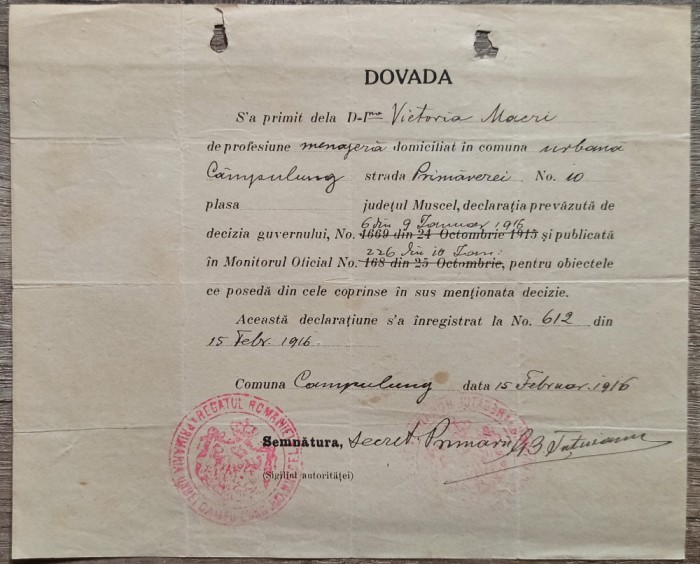 DOVADA
S'a primit dela D-na Victoria Macri
de profesiune menajeră domiciliat in comuna urbana
Câmpulung strada Primăverei No. 10
plasa județul Muscel, declarația prevăzută de
6 din 9 Januar 1916
decizia guvernului, No. 1669 din 24 Octombrie 1915 și publicată
226 din 10 Ian:
în Monitorul Oficial No. 168 din 25 Octombrie, pentru obiectele
ce posedă din cele coprinse în sus menționata decizie.
Această declarațiune s'a înregistrat la No. 612 din
15 Febr. 1916.
Comuna Campulung data 15 Februar. 1916
Semnătura, Secret Primarii
(Sigiliul autorității)
REGATUL ROMANIEI
PRIMARIA URBEI CAMPU-LUNG